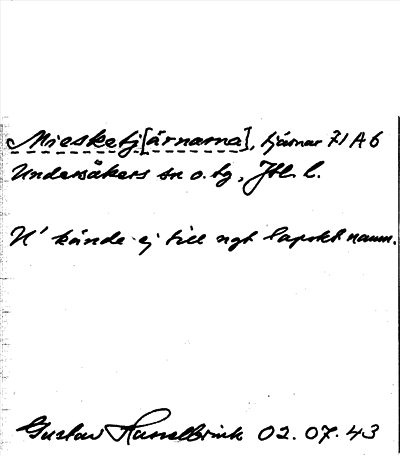 Miesketj[ärnarna], tjärnar 71 A 6
Undersåkers sn o. tg, Jtl. l.
N' kände ej till ngt lapskt namn.
Gustav Hasselbrink 02.07.43